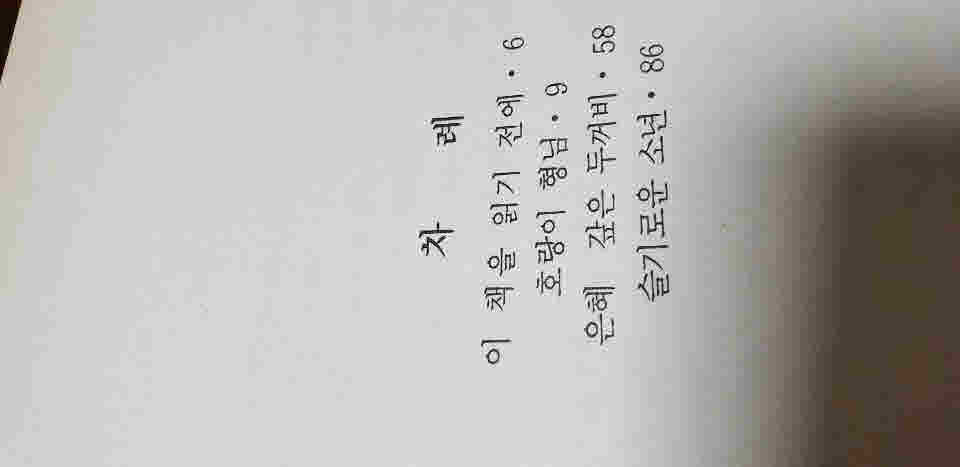 차 례
이 책을 읽기 전에 • 6
호랑이 형님 • 9
은혜 갚은 두꺼비 • 58
슬기로운 소년 • 86